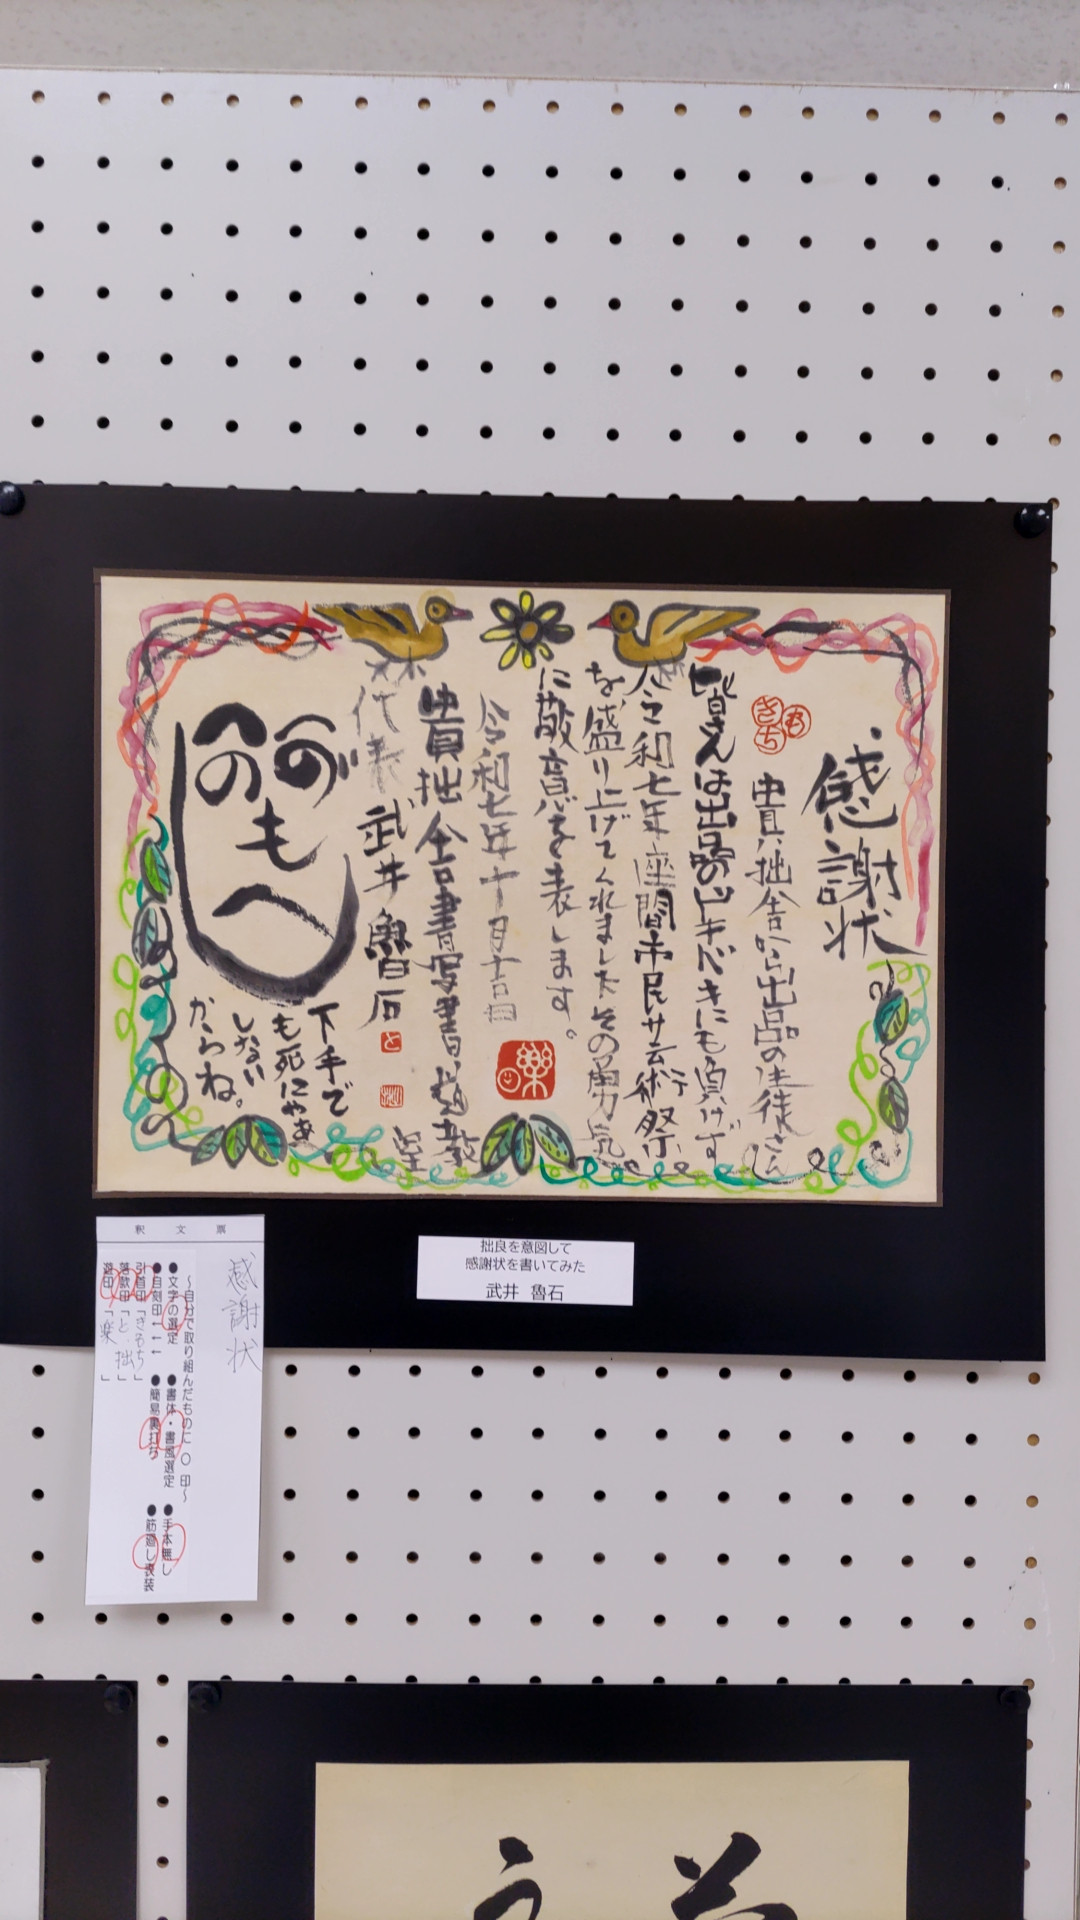 感謝状
貴拙舎から出品の生徒さん
皆さんは出品のドキドキにも負けず
令和七年座間市民芸術祭
を盛り上げてくれましたその勇気
に敬意を表します。
令和七年十月吉日
貴拙舎書写書道教室
代表 武井魯石
へのへの
もへじ
下手で
も死にやあ
しない
からね。
樂
拙良を意図して
感謝状を書いてみた
武井 魯石
釈文票
感謝状
~自分で取り組んだものに○印~
●文字の選定 ●書体・書風選定 ●手本無し
●自刻印←←← ●簡易裏打ち ●筋廻し表装
引首印「きもち」
落款印「と、拙」
遊印「楽」